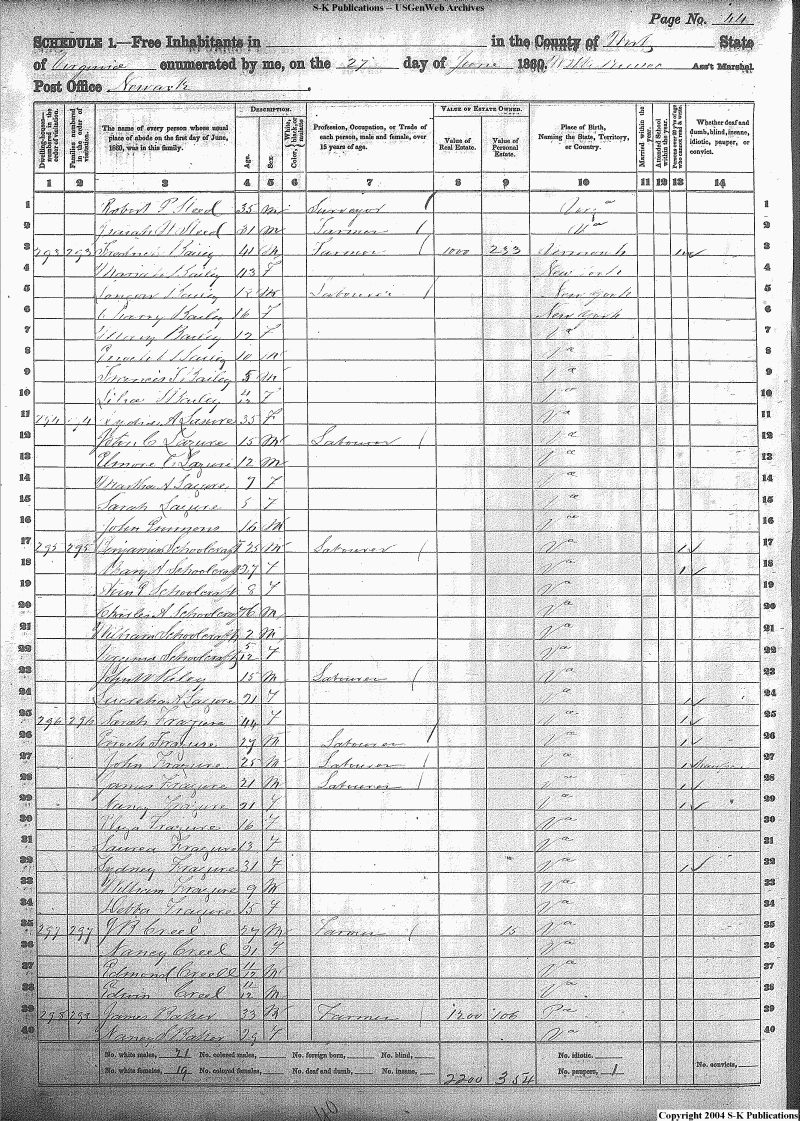 S-K Publications – USGenWeb Archives
Page No. 44
SCHEDULE 1.—Free Inhabitants in in the County of Wirt State
of Virginia enumerated by me, on the 27 day of June 1860. Ass't Marshal.
Post Office Newark.
Dwelling-houses—numbered in the order of visitation.
Families numbered in the order of visitation.
The name of every person whose usual place of abode on the first day of June, 1860, was in this family.
DESCRIPTION.
Age.
Sex.
Color, White, black, or mulatto.
Profession, Occupation, or Trade of each person, male and female, over 15 years of age.
VALUE OF ESTATE OWNED.
Value of Real Estate.
Value of Personal Estate.
Place of Birth, Naming the State, Territory, or Country.
Married within the year.
Attended School within the year.
Persons over 20 y'rs of age who cannot read & write.
Whether deaf and dumb, blind, insane, idiotic, pauper, or convict.
1 2 3 4 5 6 7 8 9 10 11 12 13 14
1 Robert P. Steed 35 M Surveyor 1
2 Steed 21 M Farmer Va 2
3 293 293 Bailey 41 M Farmer 1000 233 Vermont 3
4 Maria Bailey 43 F New York 4
5 18 M Labourer New York 5
6 Bailey 16 F New York 6
7 Bailey 12 F Va 7
8 10 M Va 8
9 Francis Bailey 5 M Va 9
10 Bailey F Va 10
11 294 A Lazure 35 F Va 11
12 John C Lazure 15 M Labourer Va 12
13 Elmore T. Lazure 12 M Va 13
14 Martha A Lazure 7 F Va 14
15 Sarah Lazure 5 F Va 15
16 John Emmons 16 M Va 16
17 295 295 Benjamin Schoolcraft 25 M Labourer Va 1 17
18 Mary A Schoolcraft 27 F Va 1 18
19 Schoolcraft 8 F Va 19
20 Charles A Schoolcraft M Va 20
21 William Schoolcraft 2 M Va 21
22 Virginia Schoolcraft 5/12 F Va 22
23 John W Riley 15 M Labourer Va 23
24 Lucretia A Lazure 21 F Va 1 24
25 296 296 Sarah Frazure 44 F Va 1 25
26 Enoch Frazure 27 M Labourer Va 1 26
27 John Frazure 25 M Labourer Va 1 27
28 James Frazure 21 M Labourer Va 1 28
29 Nancy Frazure 21 F Va 1 29
30 Eliza Frazure 16 F Va 30
31 Laurea Frazure 13 F Va 31
32 Sydney Frazure 31 F Va 1 32
33 William Frazure 9 M Va 33
34 Frazure 15 F Va 34
35 297 297 Creel 27 M Farmer 15 Va 35
36 Nancy Creel 21 F Va 36
37 Edmond Creell 11/12 M Va 37
38 Edwin Creel 11/12 M Va 38
39 298 298 James Baker 33 M Farmer 1200 106 Pa 39
40 Nancy Baker 29 F Va 40
No. white males, 21 No. colored males, No. foreign born, No. blind, No. idiotic,
No. white females, 19 No. colored females, No. deaf and dumb, No. insane, 2200 354 No. paupers, 1 No. convicts,
40
Copyright 2004 S-K Publications